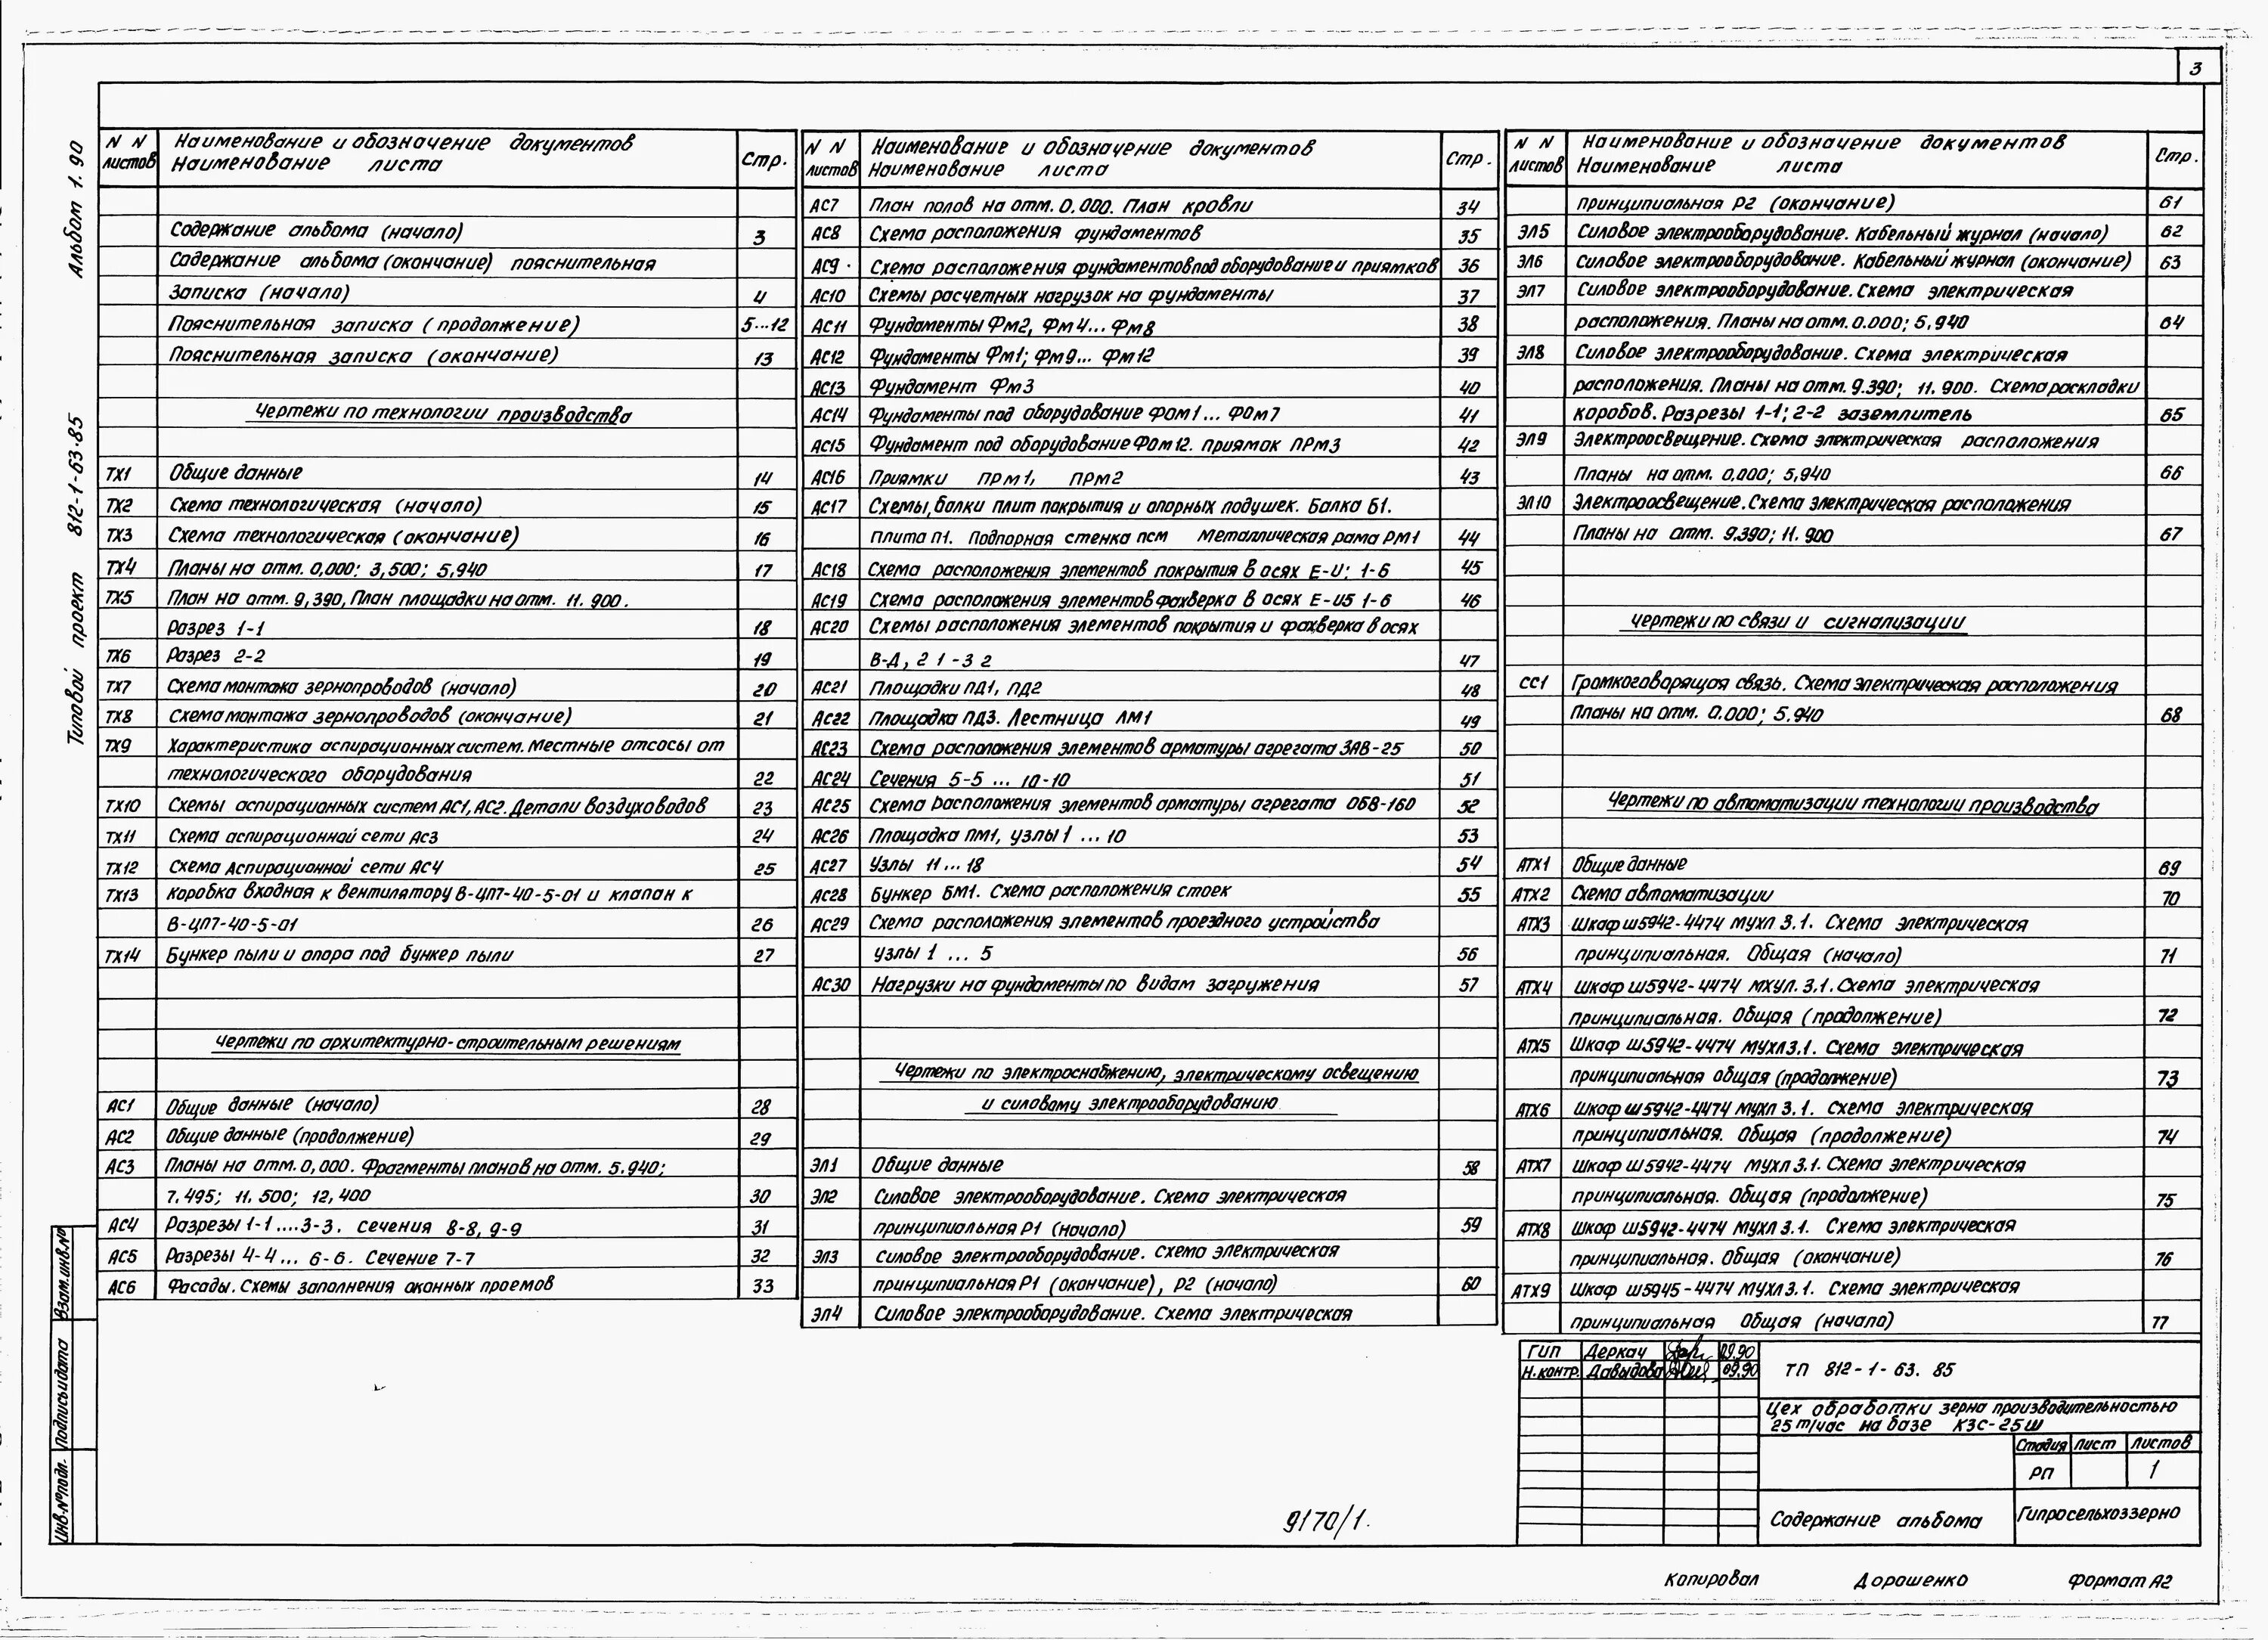 3
Альбом 1.90
Типовой проект 812-1-63.85
N N листов
Наименование и обозначение документов
Наименование листа
Стр.
Содержание альбома (начало) 3
Содержание альбома (окончание) пояснительная
Записка (начало) 4
Пояснительная записка (продолжение) 5...12
Пояснительная записка (окончание) 13
Чертежи по технологии производства
ТХ1 Общие данные 14
ТХ2 Схема технологическая (начало) 15
ТХ3 Схема технологическая (окончание) 16
ТХ4 Планы на отм. 0,000; 3,500; 5,940 17
ТХ5 План на отм. 9,390, План площадки на отм. 11.900.
Разрез 1-1 18
ТХ6 Разрез 2-2 19
ТХ7 Схема монтажа зернопроводов (начало) 20
ТХ8 Схема монтажа зернопроводов (окончание) 21
ТХ9 Характеристика аспирационных систем. Местные отсосы от
технологического оборудования 22
ТХ10 Схемы аспирационных систем АС1, АС2. Детали воздуховодов 23
ТХ11 Схема аспирационной сети АС3 24
ТХ12 Схема Аспирационной сети АС4 25
ТХ13 Коробка входная к вентилятору В-ЦП7-40-5-01 и клапан к
В-ЦП7-40-5-01 26
ТХ14 Бункер пыли и опора под бункер пыли 27
Чертежи по архитектурно-строительным решениям
АС1 Общие данные (начало) 28
АС2 Общие данные (продолжение) 29
АС3 Планы на отм. 0,000. Фрагменты планов на отм. 5.940;
7.495; 11.500; 12,400 30
АС4 Разрезы 1-1....3-3. Сечения 8-8, 9-9 31
АС5 Разрезы 4-4... 6-6. Сечение 7-7 32
АС6 Фасады. Схемы заполнения оконных проемов 33
N N листов
Наименование и обозначение документов
Наименование листа
Стр.
АС7 План полов на отм. 0.000. План кровли 34
АС8 Схема расположения фундаментов 35
АС9 Схема расположения фундаментов под оборудование и приямков 36
АС10 Схемы расчетных нагрузок на фундаменты 37
АС11 Фундаменты Фм2, Фм4... Фм8 38
АС12 Фундаменты Фм1; Фм9... Фм12 39
АС13 Фундамент Фм3 40
АС14 Фундаменты под оборудование ФОм1... ФОм7 41
АС15 Фундамент под оборудование ФОм12. Приямок ПРм3 42
АС16 Приямки ПРм1, ПРм2 43
АС17 Схемы, балки плит покрытия и опорных подушек. Балка Б1.
Плита П1. Подпорная стенка псм Металлическая рама РМ1 44
АС18 Схема расположения элементов покрытия в осях Е-И; 1-6 45
АС19 Схема расположения элементов фахверка в осях Е-И5 1-6 46
АС20 Схемы расположения элементов покрытия и фахверка в осях
В-Д, 21-32 47
АС21 Площадки ПД1, ПД2 48
АС22 Площадка ПД3. Лестница ЛМ1 49
АС23 Схема расположения элементов арматуры агрегата ЗАВ-25 50
АС24 Сечения 5-5 ... 10-10 51
АС25 Схема расположения элементов арматуры агрегата ОБВ-160 52
АС26 Площадка ПМ1, узлы 1 ... 10 53
АС27 Узлы 11... 18 54
АС28 Бункер БМ1. Схема расположения стоек 55
АС29 Схема расположения элементов проездного устройства
узлы 1 ... 5 56
АС30 Нагрузки на фундаменты по видам загружения 57
Чертежи по электроснабжению, электрическому освещению
и силовому электрооборудованию
ЭЛ1 Общие данные 58
ЭЛ2 Силовое электрооборудование. Схема электрическая
принципиальная Р1 (начало) 59
ЭЛ3 Силовое электрооборудование. Схема электрическая
принципиальная Р1 (окончание), Р2 (начало) 60
ЭЛ4 Силовое электрооборудование. Схема электрическая
N N листов
Наименование и обозначение документов
Наименование листа
Стр.
принципиальная Р2 (окончание) 61
ЭЛ5 Силовое электрооборудование. Кабельный журнал (начало) 62
ЭЛ6 Силовое электрооборудование. Кабельный журнал (окончание) 63
ЭЛ7 Силовое электрооборудование. Схема электрическая
расположения. Планы на отм. 0.000; 5,940 64
ЭЛ8 Силовое электрооборудование. Схема электрическая
расположения. Планы на отм. 9.390; 11.900. Схема раскладки
коробов. Разрезы 1-1; 2-2 заземлитель 65
ЭЛ9 Электроосвещение. Схема электрическая расположения
Планы на отм. 0,000; 5,940 66
ЭЛ10 Электроосвещение. Схема электрическая расположения
Планы на отм. 9.390; 11.900 67
Чертежи по связи и сигнализации
СС1 Громкоговорящая связь. Схема электрическая расположения
Планы на отм. 0.000; 5.940 68
Чертежи по автоматизации технологии производства
АТХ1 Общие данные 69
АТХ2 Схема автоматизации 70
АТХ3 Шкаф Ш5942-4474 МУХЛ 3.1. Схема электрическая
принципиальная. Общая (начало) 71
АТХ4 Шкаф Ш5942-4474 МХУЛ. 3.1. Схема электрическая
принципиальная. Общая (продолжение) 72
АТХ5 Шкаф Ш5942-4474 МУХЛ3.1. Схема электрическая
принципиальная общая (продолжение) 73
АТХ6 Шкаф Ш5942-4474 МУХЛ 3.1. Схема электрическая
принципиальная. Общая (продолжение) 74
АТХ7 Шкаф Ш5942-4474 МУХЛ 3.1. Схема электрическая
принципиальная. Общая (продолжение) 75
АТХ8 Шкаф Ш5942-4474 МУХЛ 3.1. Схема электрическая
принципиальная. Общая (окончание) 76
АТХ9 Шкаф Ш5945-4474 МУХЛ3.1. Схема электрическая
принципиальная Общая (начало) 77
Взам. инв.№
Подпись и дата
Инв.№ подл.
ГИП Деркач 09.90
Н.контр. Давыдова 09.90
ТП 812-1-63.85
Цех обработки зерна производительностью
25 т/час на базе КЗС-25Ш
Стадия Лист Листов
РП 1
Содержание альбома
Гипросельхоззерно
9170/1.
Копировал Дорошенко Формат А2